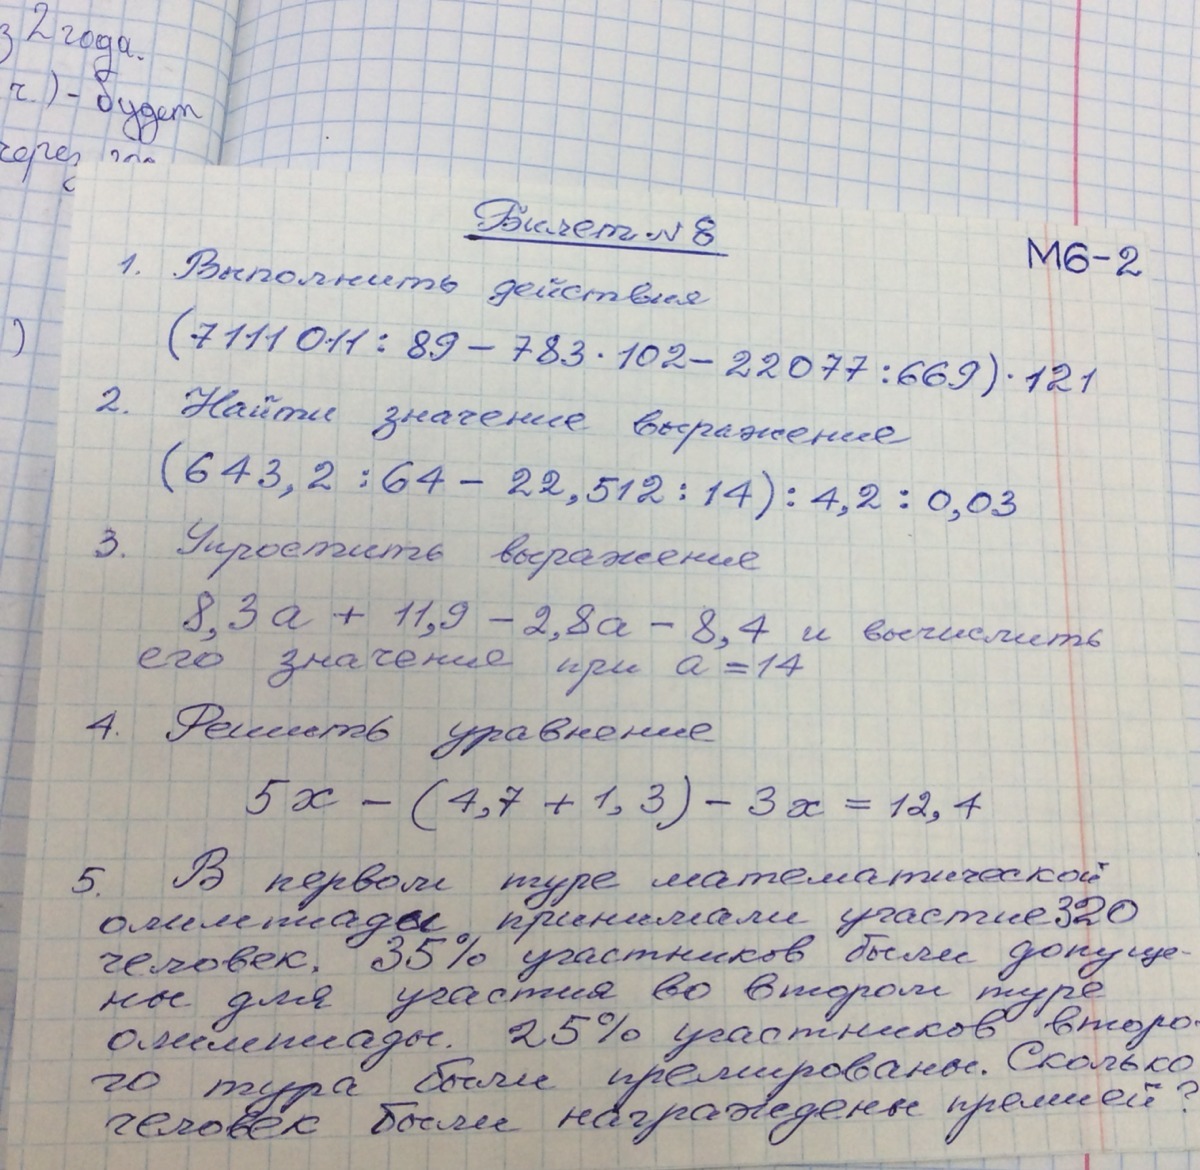 з 2 года.
ч.) - будет
через
)
Билет № 8
М6-2
1. Выполнить действия
(7111011 : 89 - 783 · 102 - 22077 : 669) · 121
2. Найти значение выражение
(643,2 : 64 - 22,512 : 14) : 4,2 : 0,03
3. Упростить выражение
8,3а + 11,9 - 2,8а - 8,4 и вычислить
его значение при а = 14
4. Решить уравнение
5х - (4,7 + 1,3) - 3х = 12,4
5. В первом туре математической
олимпиады принимали участие 320
человек. 35% участников были допуще-
ны для участия во втором туре
олимпиады. 25% участников второ-
го тура были премированы. Сколько
человек были награждены премией?